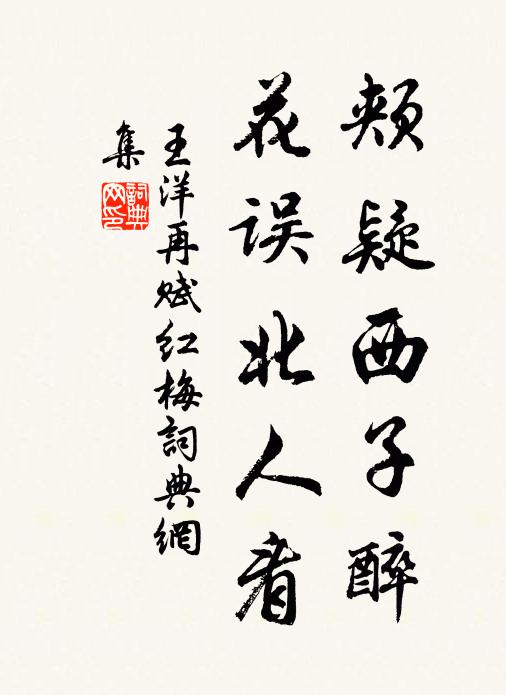 頰疑西子醉
花误北人看
王洋再赋红梅詞典網
集
詞典网印